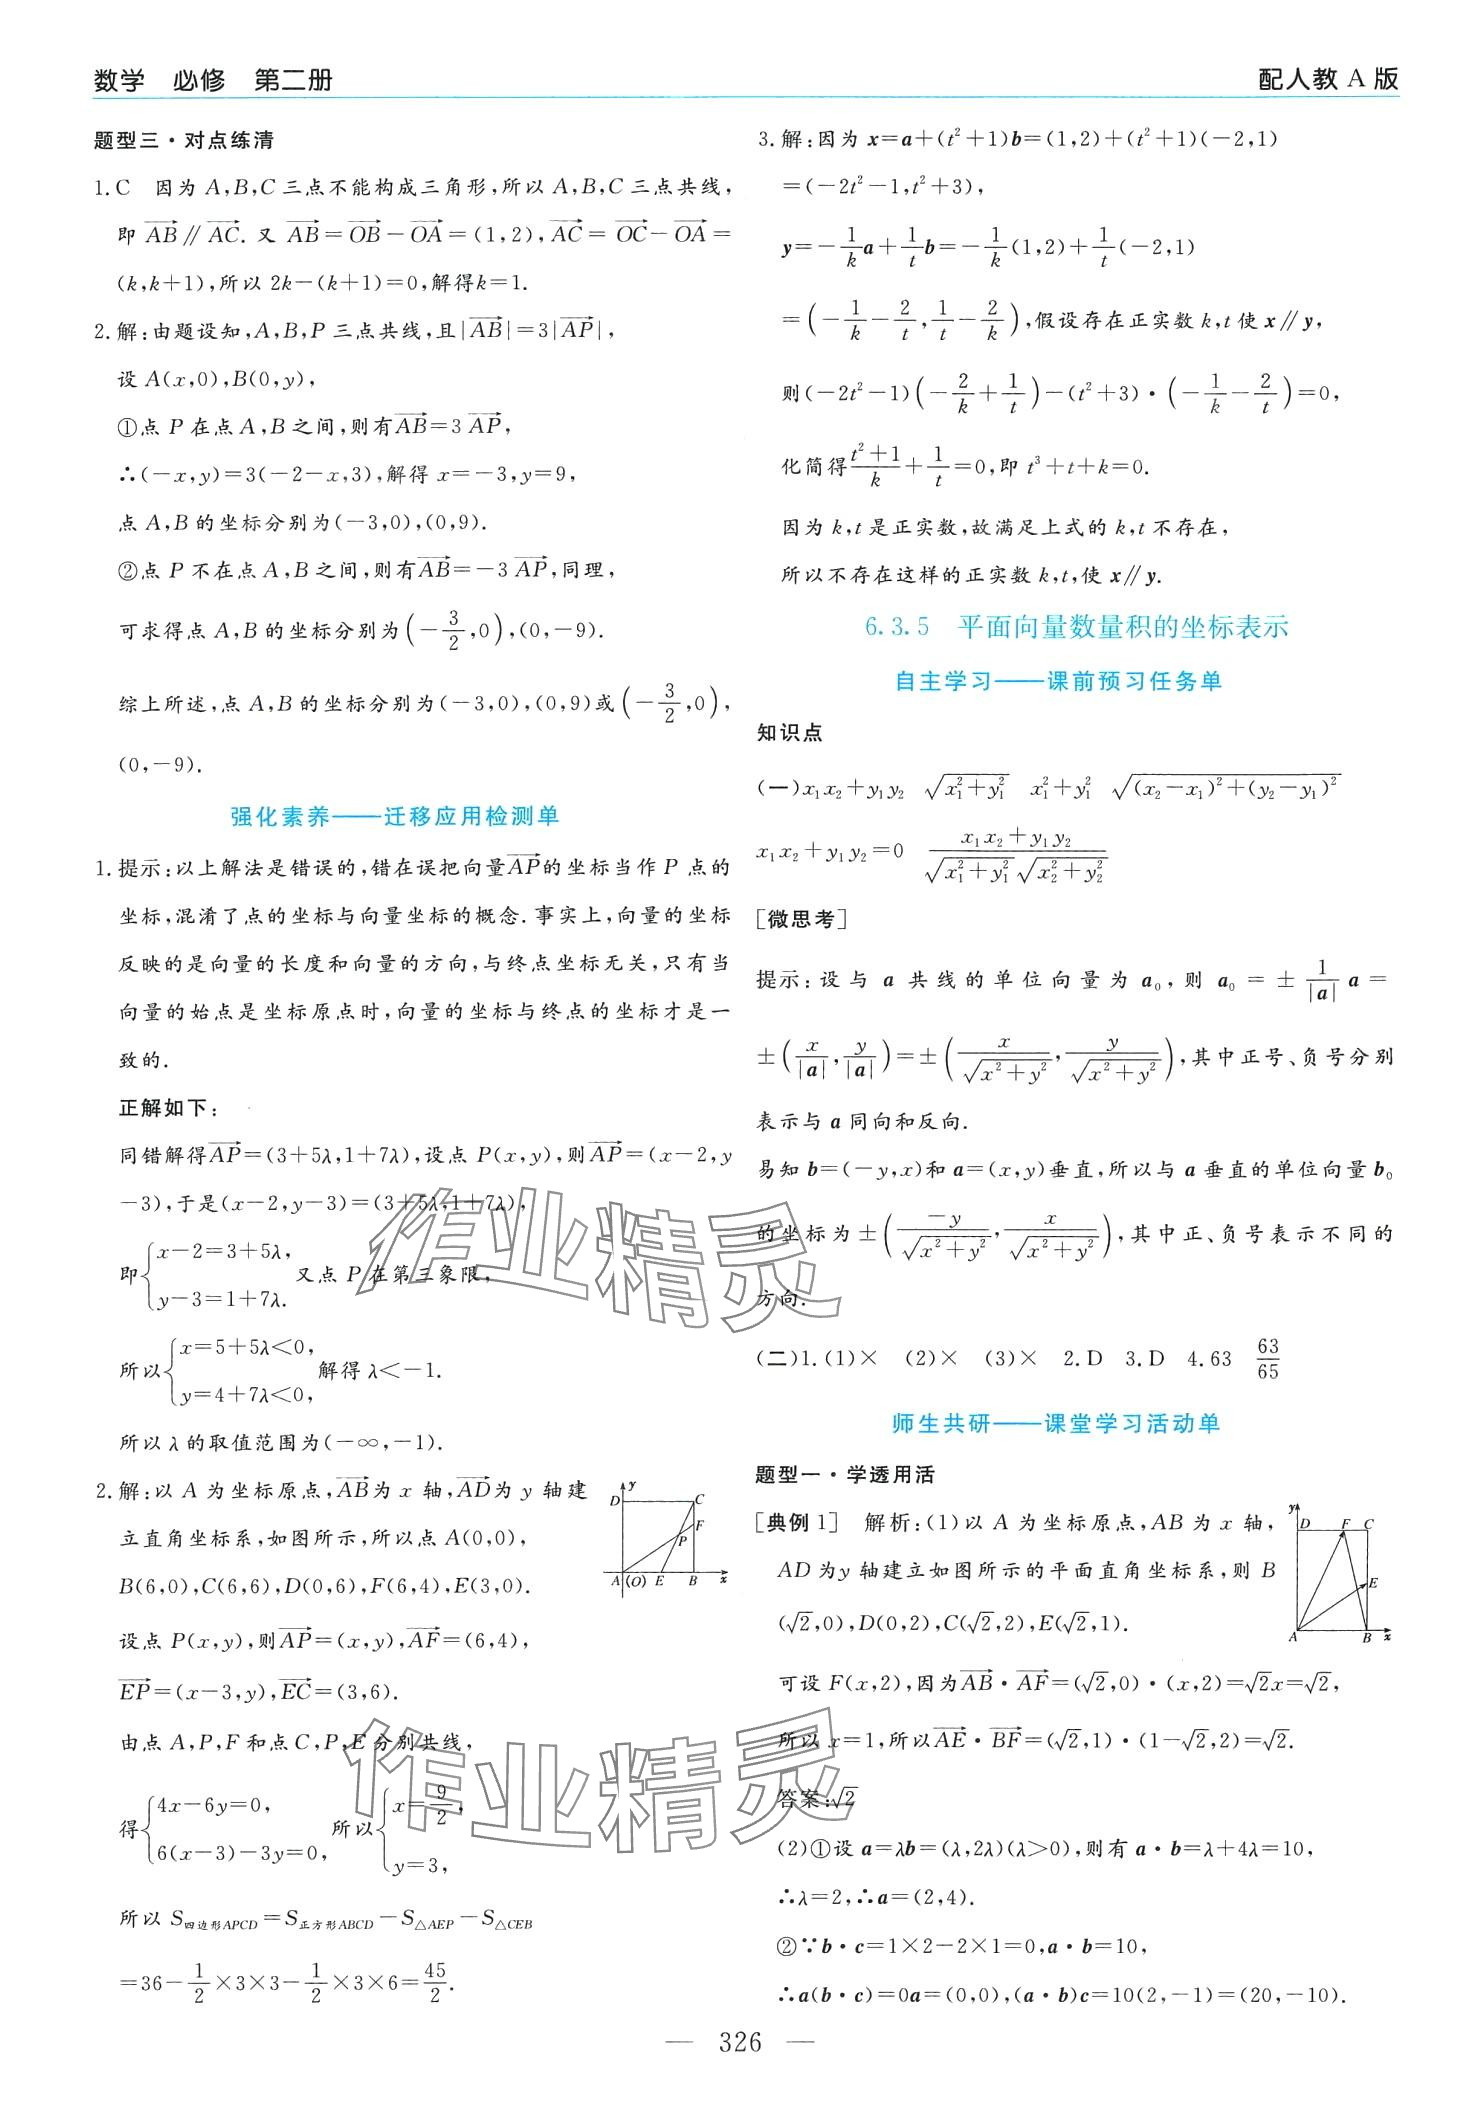 数学　必修　第二册
配人教 A 版
题型三·对点练清
1.C　因为 A,B,C 三点不能构成三角形,所以 A,B,C 三点共线,
即 $\overrightarrow{AB}$∥$\overrightarrow{AC}$. 又 $\overrightarrow{AB}=\overrightarrow{OB}-\overrightarrow{OA}=(1,2),\overrightarrow{AC}=\overrightarrow{OC}-\overrightarrow{OA}=$
(k,k+1),所以 2k-(k+1)=0,解得k=1.
2.解:由题设知,A,B,P 三点共线,且|$\overrightarrow{AB}$|=3|$\overrightarrow{AP}$|,
设 A(x,0),B(0,y),
①点 P 在点 A,B 之间,则有$\overrightarrow{AB}$=3 $\overrightarrow{AP}$,
∴(-x,y)=3(-2-x,3),解得 x=-3,y=9,
点 A,B 的坐标分别为(-3,0),(0,9).
②点 P 不在点 A,B 之间,则有$\overrightarrow{AB}$=-3 $\overrightarrow{AP}$,同理,
可求得点 A,B 的坐标分别为$\left(-\frac{3}{2},0\right)$,(0,-9).
综上所述,点 A,B 的坐标分别为(-3,0),(0,9)或$\left(-\frac{3}{2},0\right)$,
(0,-9).
强化素养——迁移应用检测单
1.提示:以上解法是错误的,错在误把向量$\overrightarrow{AP}$的坐标当作 P 点的
坐标,混淆了点的坐标与向量坐标的概念.事实上,向量的坐标
反映的是向量的长度和向量的方向,与终点坐标无关,只有当
向量的始点是坐标原点时,向量的坐标与终点的坐标才是一
致的.
正解如下:
同错解得$\overrightarrow{AP}$=(3+5λ,1+7λ),设点 P(x,y),则$\overrightarrow{AP}$=(x-2,y
-3),于是(x-2,y-3)=(3+5λ,1+7λ),
即$\begin{cases}x-2=3+5λ,\\y-3=1+7λ.\end{cases}$又点 P 在第三象限,
所以$\begin{cases}x=5+5λ<0,\\y=4+7λ<0,\end{cases}$解得 λ<-1.
所以 λ 的取值范围为(-∞,-1).
2.解:以 A 为坐标原点,$\overrightarrow{AB}$为 x 轴,$\overrightarrow{AD}$为 y 轴建
立直角坐标系,如图所示,所以点 A(0,0),
B(6,0),C(6,6),D(0,6),F(6,4),E(3,0).
y D C F P A (O) E B x
设点 P(x,y),则$\overrightarrow{AP}$=(x,y),$\overrightarrow{AF}$=(6,4),
$\overrightarrow{EP}$=(x-3,y),$\overrightarrow{EC}$=(3,6).
由点 A,P,F 和点 C,P,E 分别共线,
得$\begin{cases}4x-6y=0,\\6(x-3)-3y=0,\end{cases}$所以$\begin{cases}x=\frac{9}{2},\\y=3,\end{cases}$
所以 $S_{四边形APCD}=S_{正方形ABCD}-S_{△AEP}-S_{△CEB}$
$=36-\frac{1}{2}×3×3-\frac{1}{2}×3×6=\frac{45}{2}$.
3.解:因为 x=a+(t²+1)b=(1,2)+(t²+1)(-2,1)
=(-2t²-1,t²+3),
$y=-\frac{1}{k}a+\frac{1}{t}b=-\frac{1}{k}(1,2)+\frac{1}{t}(-2,1)$
$=\left(-\frac{1}{k}-\frac{2}{t},\frac{1}{t}-\frac{2}{k}\right)$,假设存在正实数 k,t 使 x∥y,
则$(-2t²-1)\left(-\frac{2}{k}+\frac{1}{t}\right)-(t²+3)·\left(-\frac{1}{k}-\frac{2}{t}\right)=0$,
化简得$\frac{t²+1}{k}+\frac{1}{t}=0$,即 t³+t+k=0.
因为 k,t 是正实数,故满足上式的 k,t 不存在,
所以不存在这样的正实数 k,t,使 x∥y.
6.3.5　平面向量数量积的坐标表示
自主学习——课前预习任务单
知识点
(一)$x_1x_2+y_1y_2$　$\sqrt{x_1^2+y_1^2}$　$x_1^2+y_1^2$　$\sqrt{(x_2-x_1)^2+(y_2-y_1)^2}$
$x_1x_2+y_1y_2=0$　$\frac{x_1x_2+y_1y_2}{\sqrt{x_1^2+y_1^2}\sqrt{x_2^2+y_2^2}}$
[微思考]
提示:设与 a 共线的单位向量为 $a_0$,则 $a_0=±\frac{1}{|a|}a=$
$±\left(\frac{x}{|a|},\frac{y}{|a|}\right)=±\left(\frac{x}{\sqrt{x^2+y^2}},\frac{y}{\sqrt{x^2+y^2}}\right)$,其中正号、负号分别
表示与 a 同向和反向.
易知 b=(-y,x)和 a=(x,y)垂直,所以与 a 垂直的单位向量 $b_0$
的坐标为$±\left(\frac{-y}{\sqrt{x^2+y^2}},\frac{x}{\sqrt{x^2+y^2}}\right)$,其中正、负号表示不同的
方向.
(二)1.(1)×　(2)×　(3)×　2.D　3.D　4.63　$\frac{63}{65}$
师生共研——课堂学习活动单
题型一·学透用活
[典例 1]　解析:(1)以 A 为坐标原点,AB 为 x 轴,
AD 为y 轴建立如图所示的平面直角坐标系,则 B
$(\sqrt{2},0),D(0,2),C(\sqrt{2},2),E(\sqrt{2},1)$.
y D F C E A B x
可设 F(x,2),因为$\overrightarrow{AB}·\overrightarrow{AF}=(\sqrt{2},0)·(x,2)=\sqrt{2}x=\sqrt{2}$,
所以 x=1,所以$\overrightarrow{AE}·\overrightarrow{BF}=(\sqrt{2},1)·(1-\sqrt{2},2)=\sqrt{2}$.
答案:$\sqrt{2}$
(2)①设 a=λb=(λ,2λ)(λ>0),则有 a·b=λ+4λ=10,
∴λ=2,∴a=(2,4).
②∵b·c=1×2-2×1=0,a·b=10,
∴a(b·c)=0a=(0,0),(a·b)c=10(2,-1)=(20,-10).
作业精灵
作业精灵
— 326 —